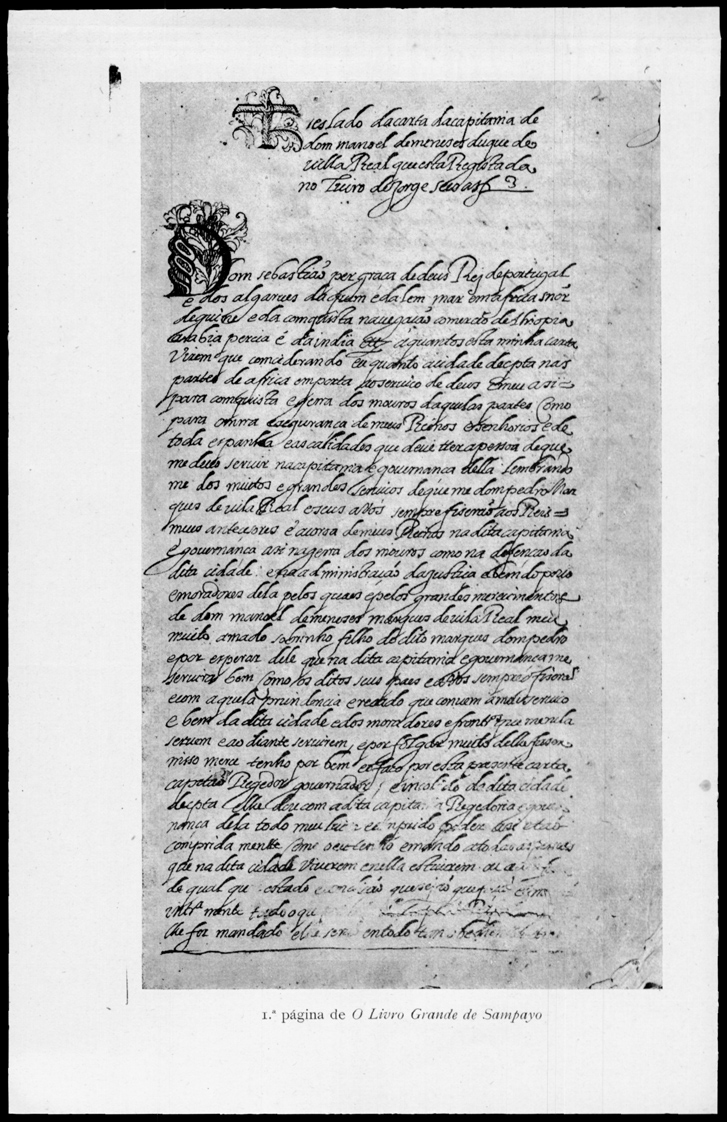 Treslado da carta da capitania de
dom manoel de meneses duque de
villa Real que esta Registada
no Livro de Jorge seco a f 3.
Dom sebastiao per graca de deus Rej de portugal
e dos algarues daquem e da lem mar em africa snor
de guine e da comquista nauegaçaõ comercio de thiopia
arabia percia é da india a quantos esta minha carta
Virem que comciderando eu quanto a cidade de cepta nas
partes de africa emporta ao seruico de deus e meu asi
para comquista e gerra dos mouros daquelas partes Como
para omrra e seguranca de meus Reinos e senhorios e de
toda espanha e as calidades que deue ter a pesoa de que
me deuo seruir na capitania e gouernanca della lembrando
me dos muitos e grandes seruicos de que me dom pedro Mar
ques de uila Real e seus auos sempre fiseraõ aos Reis
meus antecesores e a coroa de meus Reinos na dita capitania
e gouernanca asi na gerra dos mouros como na defencaõ da
dita cidade: e na administracaõ da justica e bem do pouo
e moradores dela pelos quaes e pelos grandes merecimentos
de dom manoel de meneses marques de uila Real meu
muito amado sobrinho filho do dito marques dom pedro
e por esperar dele que na dita capitania e gouernanca me
seruira bem Como os ditos seus paes e auos sempre o fiseraõ
e com aquela prudencia e recado que conuem a meu seruico
e bem da dita cidade e dos moradores e fronteiros que me nela
seruem e ao diante seruirem, e por folgar muito de lhe faser
nisso merce tenho por bem e o faco por esta presente carta
capitaõ Regedor gouernador da dita cidade
de cepta e lhe dou com a dita capitania Regedoria e gouer
nanca dela todo meu comprido poder
comprida mente como o eu tenho e mando a todas as pesoas
que na dita cidade Viuerem e nella estiuerem
de qual quer estado e condicaõ que sejaõ que
intrª mente tudo o que
lhe for mandado e lhe seraõ em todo taõ obedientes
1.ª página de O Livro Grande de Sampayo